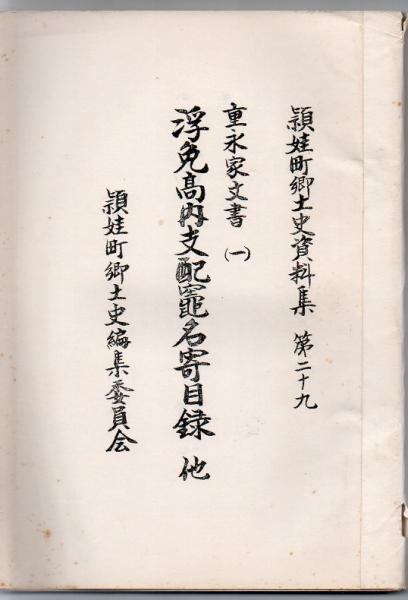 頴娃町郷土史資料集　第二十九
重永家文書（一）
浮免高内支配竈名寄目録　他
頴娃町郷土史編集委員会